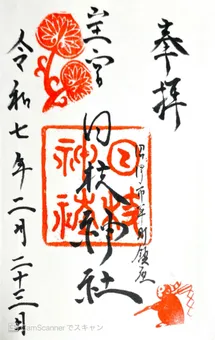 奉拝
沼津市平町鎮座
日枝神社
崇敬
日枝神社
令和七年二月二十三日
CamScannerでスキャン